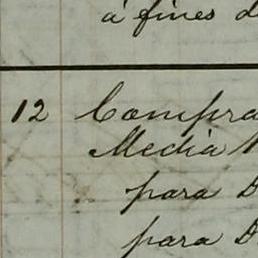 á fines d
12 Compra
Media
para D
para D